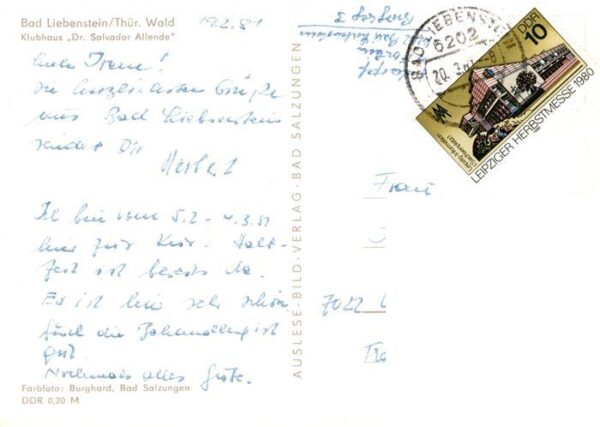 Bad Liebenstein/Thür. Wald
Klubhaus „Dr. Salvador Allende“
19.2.81
Liebe Irene!
die herzlichsten Grüße
aus Bad Liebenstein
sendet Dir
Herbert
Ich bin vom 5.2 - 4.3.81
hier zur Kur.
ist bereits da.
Es ist hier sehr schön
auch die Behandlung ist
gut.
Nochmals alles Gute.
Farbfoto: Burghard, Bad Salzungen
DDR 0,20 M
AUSLESE-BILD-VERLAG · BAD SALZUNGEN
BAD LIEBENSTEIN
6202
20.
DDR
10
LEIPZIGER HERBSTMESSE 1980
Frau
7022